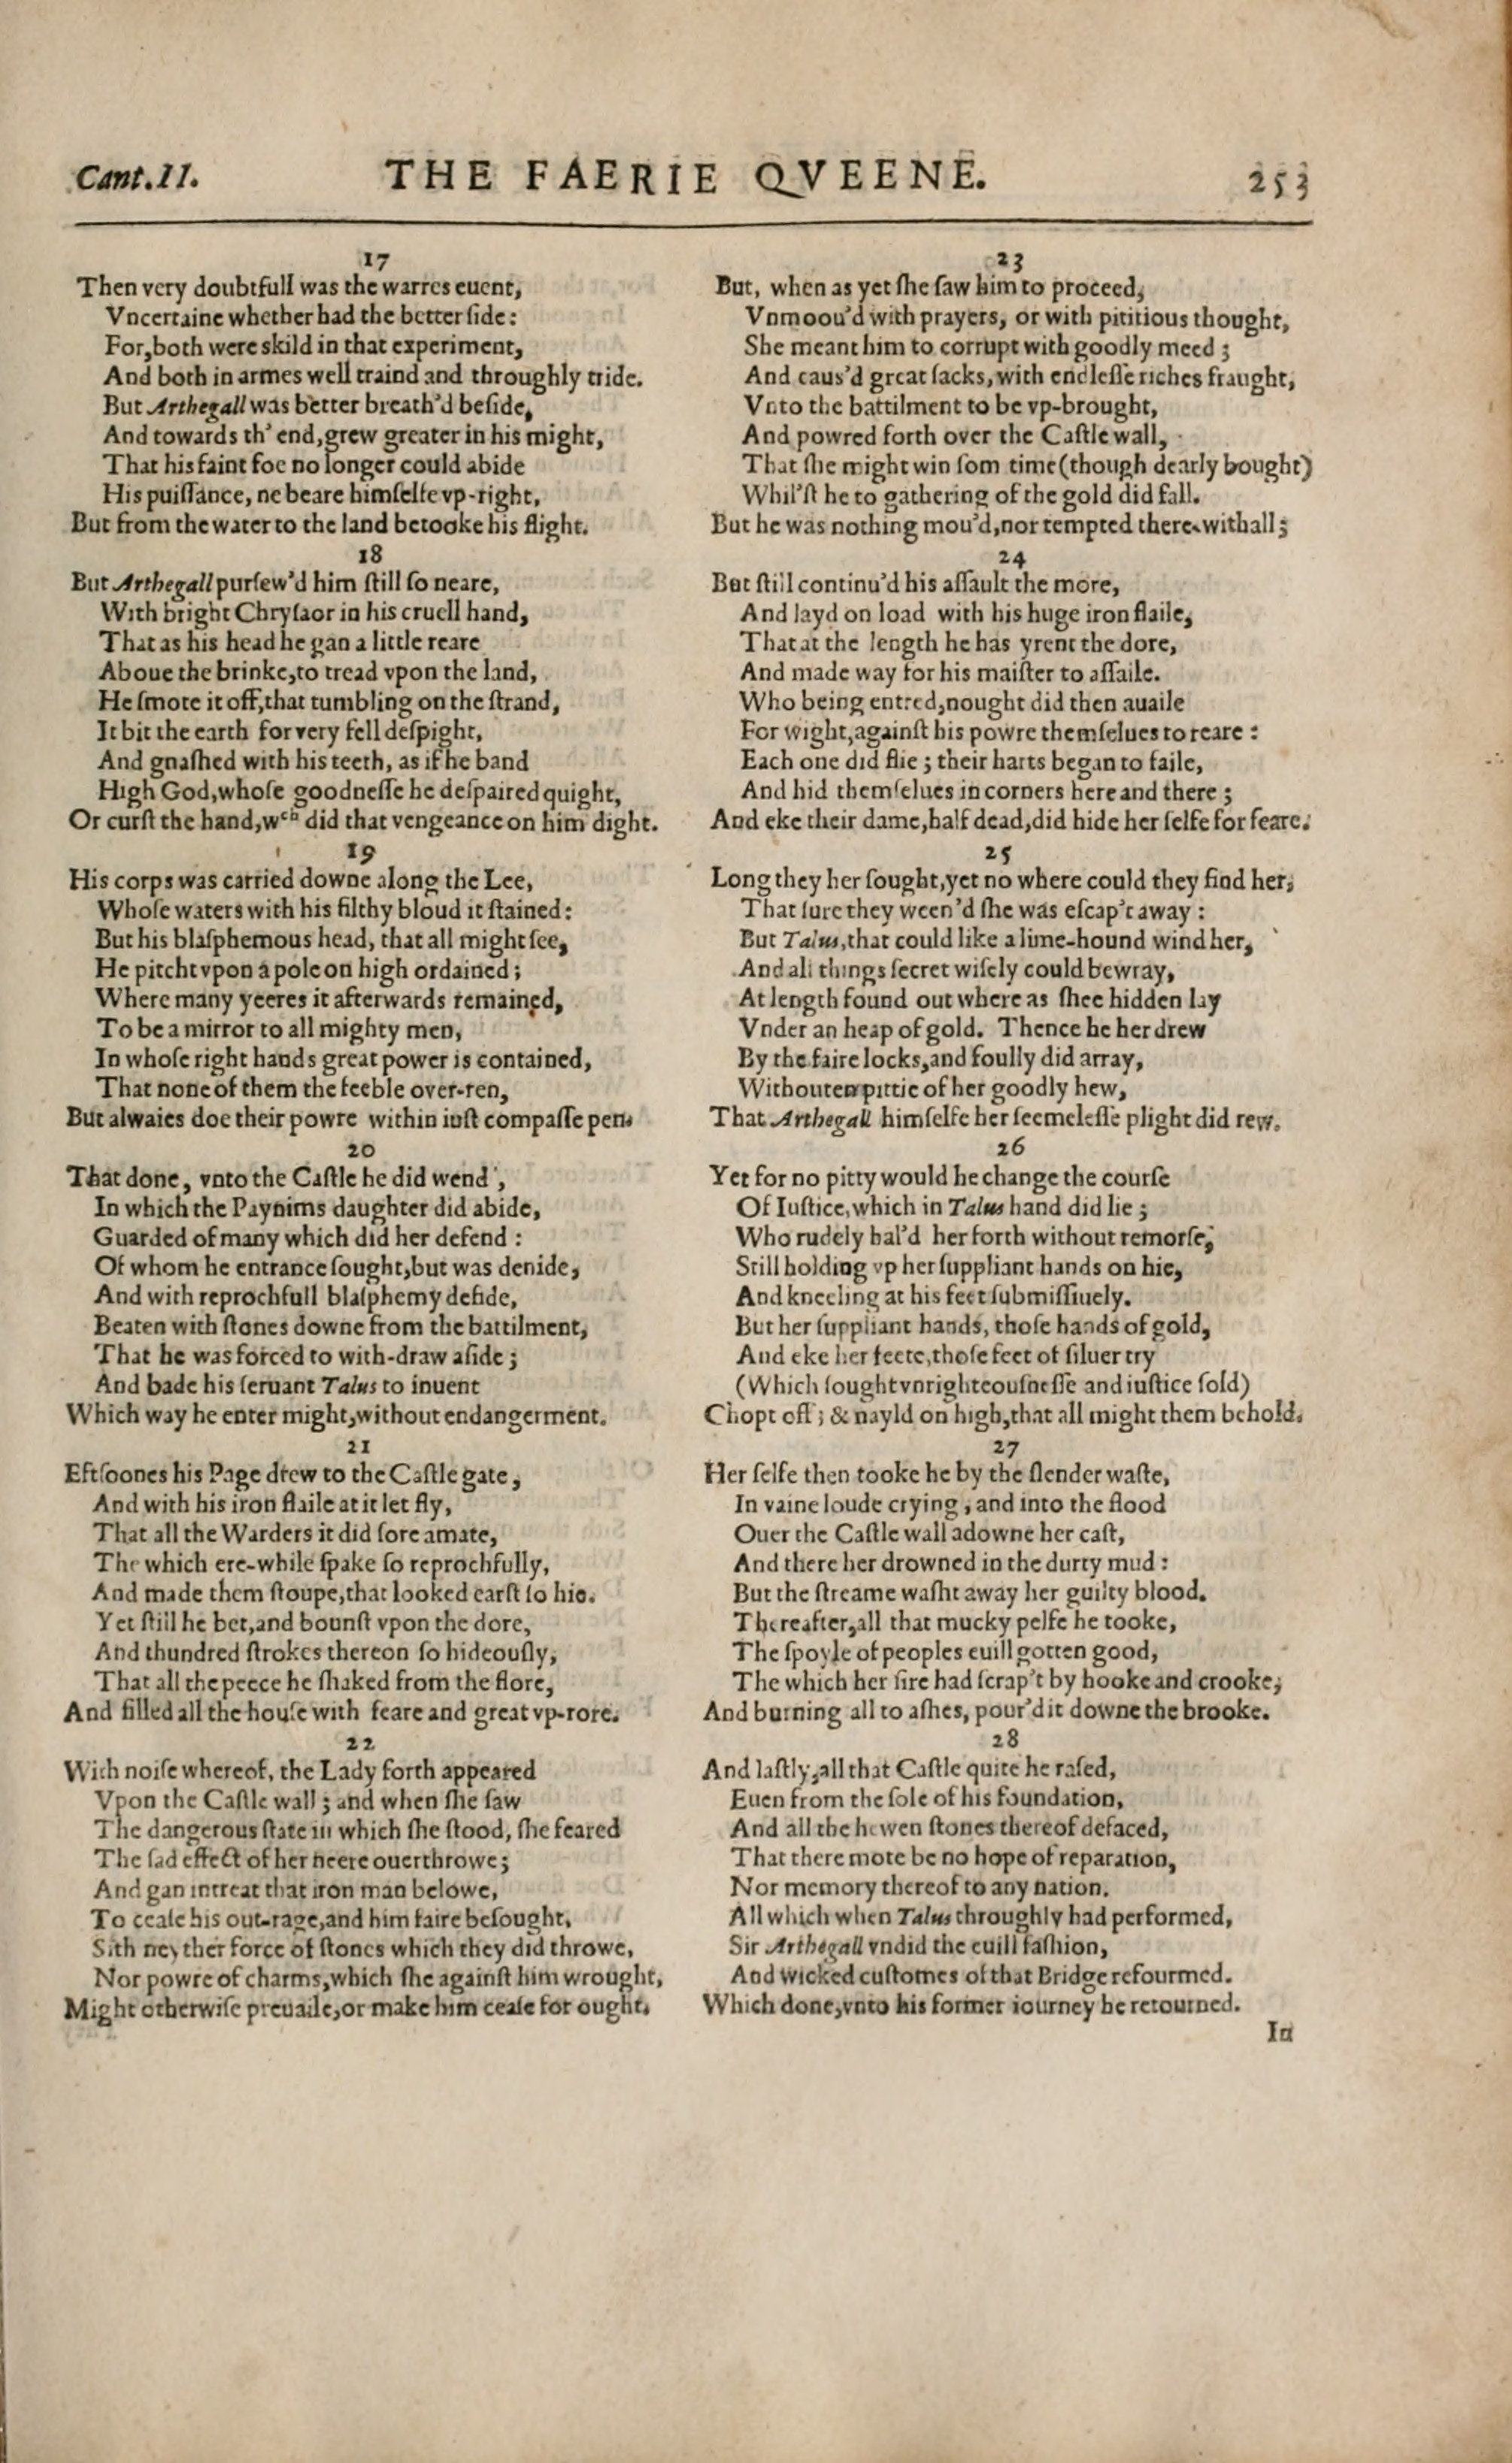 Cant. II. THE FAERIE QVEENE. 253
17
Then very doubtfull was the warres euent,
Vncertaine whether had the better ſide:
For, both were skild in that experiment,
And both in armes well traind and throughly tride.
But Arthegall was better breath'd beſide,
And towards th' end, grew greater in his might,
That his faint foe no longer could abide
His puiſſance, ne beare himſelfe vp-right,
But from the water to the land betooke his flight.
18
But Arthegall purſew'd him ſtill ſo neare,
With bright Chryſaor in his cruell hand,
That as his head he gan a little reare
Aboue the brinke, to tread vpon the land,
He ſmote it off, that tumbling on the ſtrand,
It bit the earth for very fell deſpight,
And gnaſhed with his teeth, as if he band
High God, whoſe goodneſſe he deſpaired quight,
Or curſt the hand, wᶜʰ did that vengeance on him dight.
19
His corps was carried downe along the Lee,
Whoſe waters with his filthy bloud it ſtained:
But his blaſphemous head, that all might ſee,
He pitcht vpon a pole on high ordained;
Where many yeeres it afterwards remained,
To be a mirror to all mighty men,
In whoſe right hands great power is contained,
That none of them the feeble over-ren,
But alwaies doe their powre within iuſt compaſſe pen.
20
That done, vnto the Caſtle he did wend,
In which the Paynims daughter did abide,
Guarded of many which did her defend:
Of whom he entrance ſought, but was denide,
And with reprochfull blaſphemy defide,
Beaten with ſtones downe from the battilment,
That he was forced to with-draw aſide;
And bade his ſeruant Talus to inuent
Which way he enter might, without endangerment.
21
Eftſoones his Page drew to the Caſtle gate,
And with his iron flaile at it let fly,
That all the Warders it did ſore amate,
The which ere-while ſpake ſo reprochfully,
And made them ſtoupe, that looked earſt ſo hie.
Yet ſtill he bet, and bounſt vpon the dore,
And thundred ſtrokes thereon ſo hideouſly,
That all the peece he ſhaked from the flore,
And filled all the houſe with feare and great vp-rore.
22
With noiſe whereof, the Lady forth appeared
Vpon the Caſtle wall; and when ſhe ſaw
The dangerous ſtate in which ſhe ſtood, ſhe feared
The ſad effect of her neere ouerthrowe;
And gan intreat that iron man belowe,
To ceaſe his out-rage, and him faire beſought,
Sith neyther force of ſtones which they did throwe,
Nor powre of charms, which ſhe againſt him wrought,
Might otherwiſe preuaile, or make him ceaſe for ought.
23
But, when as yet ſhe ſaw him to proceed,
Vnmoou'd with prayers, or with pititious thought,
She meant him to corrupt with goodly meed;
And caus'd great ſacks, with endleſſe riches fraught,
Vnto the battilment to be vp-brought,
And powred forth over the Caſtle wall,
That ſhe might win ſom time (though dearly bought)
Whil'ſt he to gathering of the gold did fall.
But he was nothing mou'd, nor tempted there-withall;
24
But ſtill continu'd his aſſault the more,
And layd on load with his huge iron flaile,
That at the length he has yrent the dore,
And made way for his maiſter to aſſaile.
Who being entred, nought did then auaile
For wight, againſt his powre themſelues to reare:
Each one did flie; their harts began to faile,
And hid themſelues in corners here and there;
And eke their dame, half dead, did hide her ſelfe for feare.
25
Long they her ſought, yet no where could they find her,
That ſure they ween'd ſhe was eſcap't away:
But Talus, that could like a lime-hound wind her,
And all things ſecret wiſely could bewray,
At length found out where as ſhee hidden lay
Vnder an heap of gold. Thence he her drew
By the faire locks, and foully did array,
Withouten pittie of her goodly hew,
That Arthegall himſelfe her ſeemeleſſe plight did rew.
26
Yet for no pitty would he change the courſe
Of Iuſtice, which in Talus hand did lie;
Who rudely hal'd her forth without remorſe,
Still holding vp her ſuppliant hands on hie,
And kneeling at his feet ſubmiſſiuely.
But her ſuppliant hands, thoſe hands of gold,
And eke her feete, thoſe feet of ſiluer try
(Which ſought vnrighteouſneſſe and iuſtice ſold)
Chopt off; & nayld on high, that all might them behold.
27
Her ſelfe then tooke he by the ſlender waſte,
In vaine loude crying, and into the flood
Ouer the Caſtle wall adowne her caſt,
And there her drowned in the durty mud:
But the ſtreame waſht away her guilty blood.
Thereafter, all that mucky pelfe he tooke,
The ſpoyle of peoples euill gotten good,
The which her ſire had ſcrap't by hooke and crooke,
And burning all to aſhes, pour'd it downe the brooke.
28
And laſtly, all that Caſtle quite he raſed,
Euen from the ſole of his foundation,
And all the hewen ſtones thereof defaced,
That there mote be no hope of reparation,
Nor memory thereof to any nation.
All which when Talus throughly had performed,
Sir Arthegall vndid the euill faſhion,
And wicked cuſtomes of that Bridge refourmed.
Which done, vnto his former iourney he retourned.
In